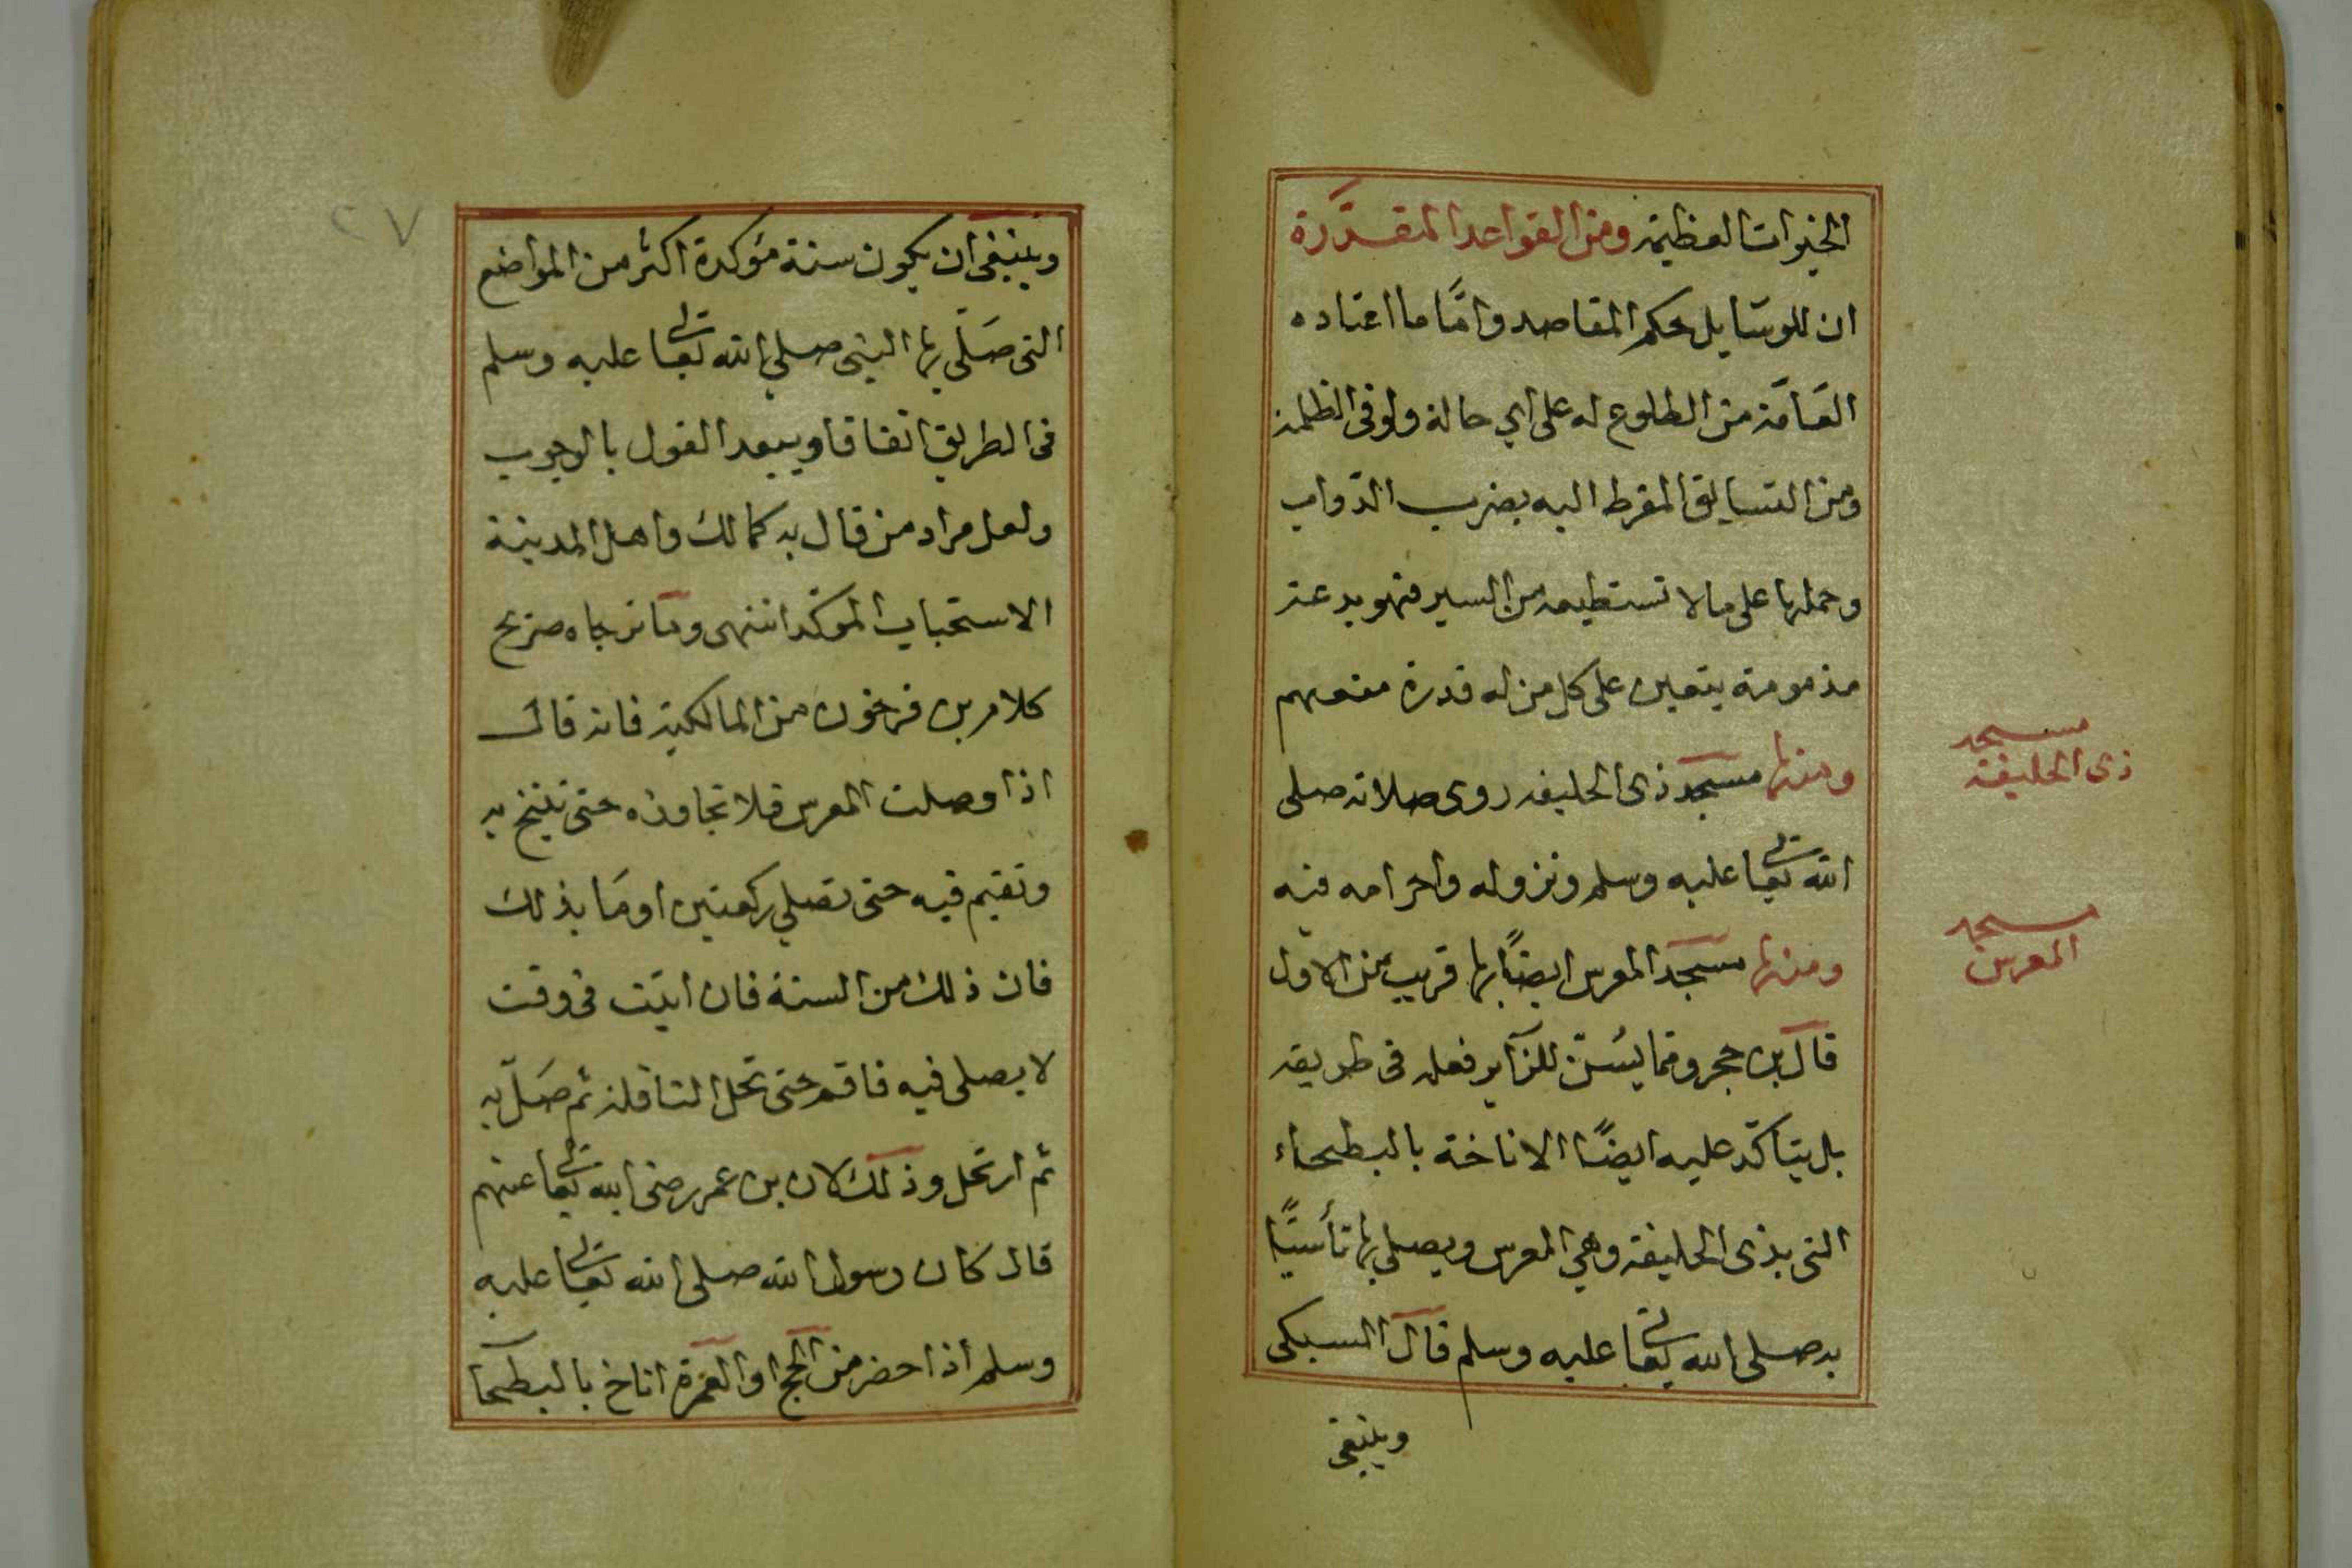 الخيرات العظيمة ومن القواعد المقررة
ان للوسايل حكم المقاصد وامّا ما اعتاده
العامّة من الطلوع له على اي حالة ولو في الظلمة
ومن التسابق المفرط اليه بضرب الدّواب
وحملها على ما لا تستطيعه من السير فهو بدعة
مذمومة يتعين على كل من له قدرة منعهم
ومنها مسجد ذى الحليفه روى صلاته صلى
الله تعالى عليه وسلم ونزوله واحرامه فيه
ومنها مسجد المعرس ايضًا بها قريب من الاول
قال بن حجر ومما يسُنّ للزاير فعله فى طريقه
بل يتاكّد عليه ايضًا الاناخة بالبطحاء
التى بذى الحليفة وهي المعرس ويصلى بها تأسيًا
به صلى الله تعالى عليه وسلم قال السبكى
وينبغى
مسجد
ذى الحليفة
مسجد
المعرس
٢٧
وينبغى ان يكون سنة مؤكدة اكثر من المواضع
التى صَلّى بها النبى صلى الله تعالى عليه وسلم
فى الطريق اتفاقا ويبعد القول بالوجوب
ولعل مراد من قال به كمالك واهل المدينة
الاستحباب المؤكد انتهى وما ترجاه صريح
كلام بن فرحون من المالكية فانه قال
اذا وصلت المعرس فلا تجاوزه حتى تنيخ به
وتقيم فيه حتى تصلي ركعتين او مَا بذلك
فان ذلك من السنة فان اتيت فى وقت
لا يصلى فيه فاقم حتى تحل النافلة ثم صَلّ به
ثم ارتحل وذلك لان بن عمر رضى الله تعالى عنهم
قال كان رسول الله صلى الله تعالى عليه
وسلم اذا حضر من الحج او العمرة اناخ بالبطحا